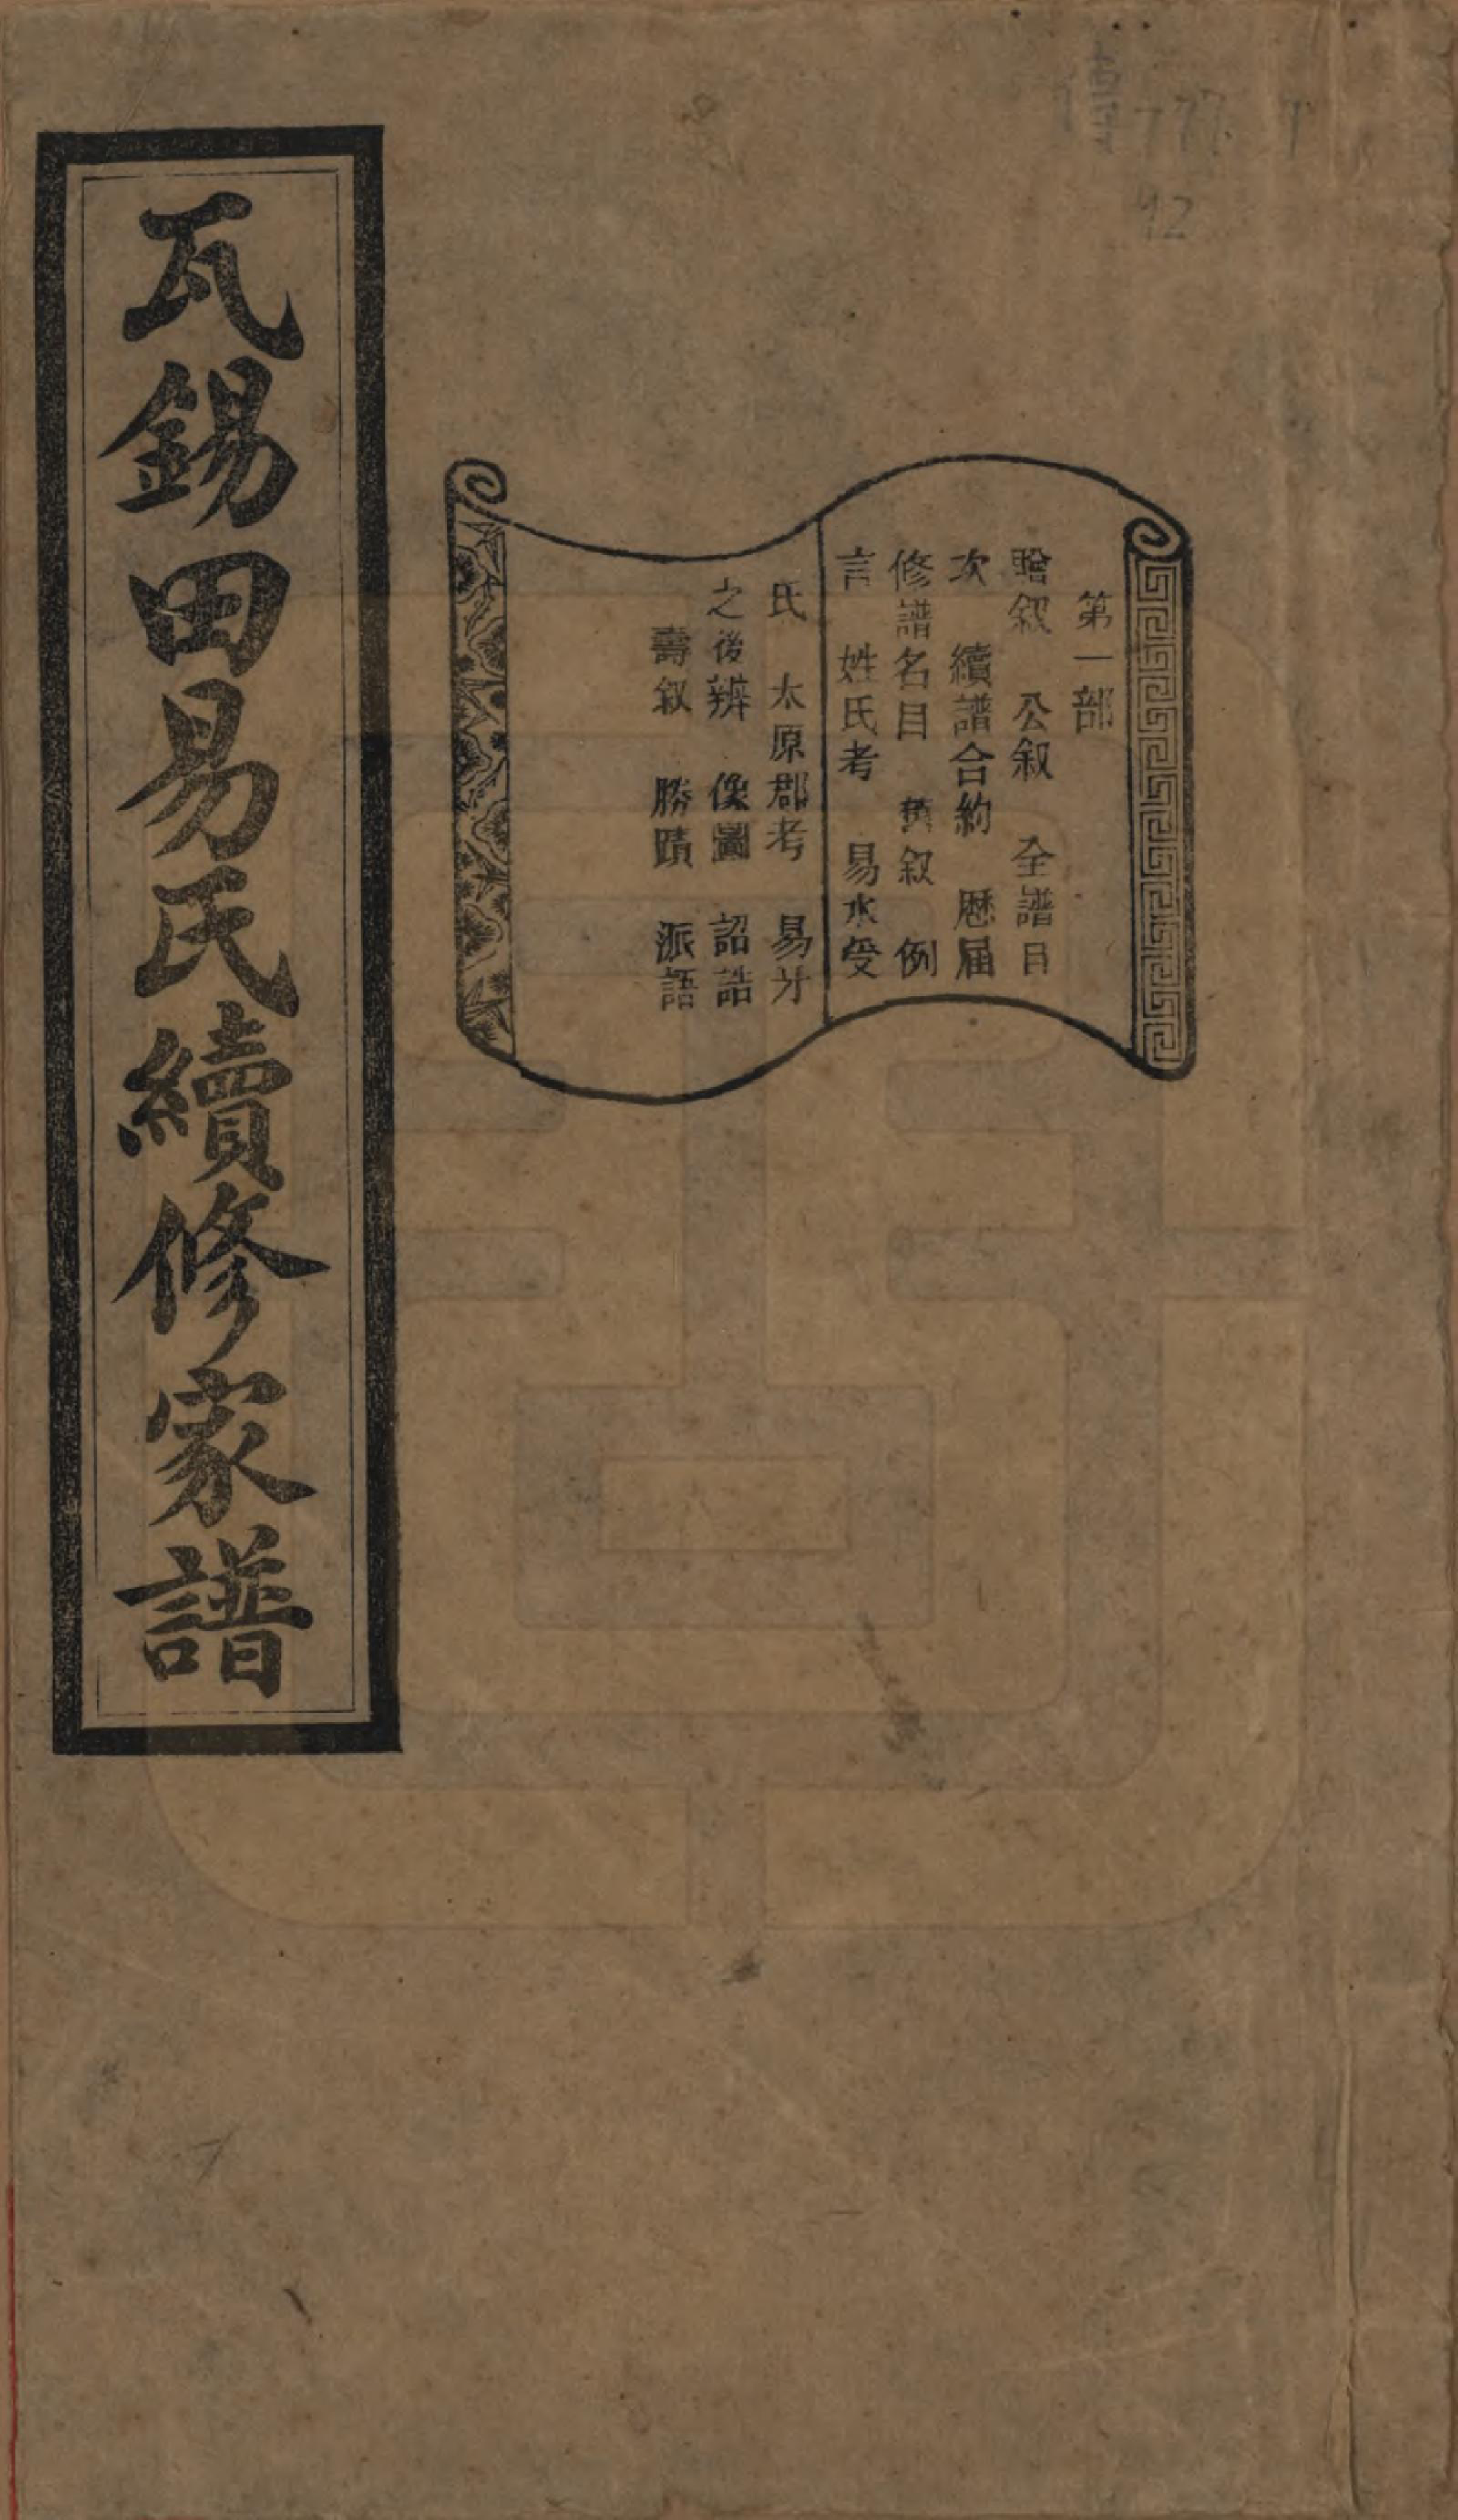 傳777 T
12
第一部
贈叙 公叙 全譜目
次 續譜合約 歷届
修譜名目 舊叙 例
言 姓氏考 易水受
氏 太原郡考 易牙
之後辨 像圖 詔誥
壽叙 勝蹟 派語
瓦錫田易氏續修家譜